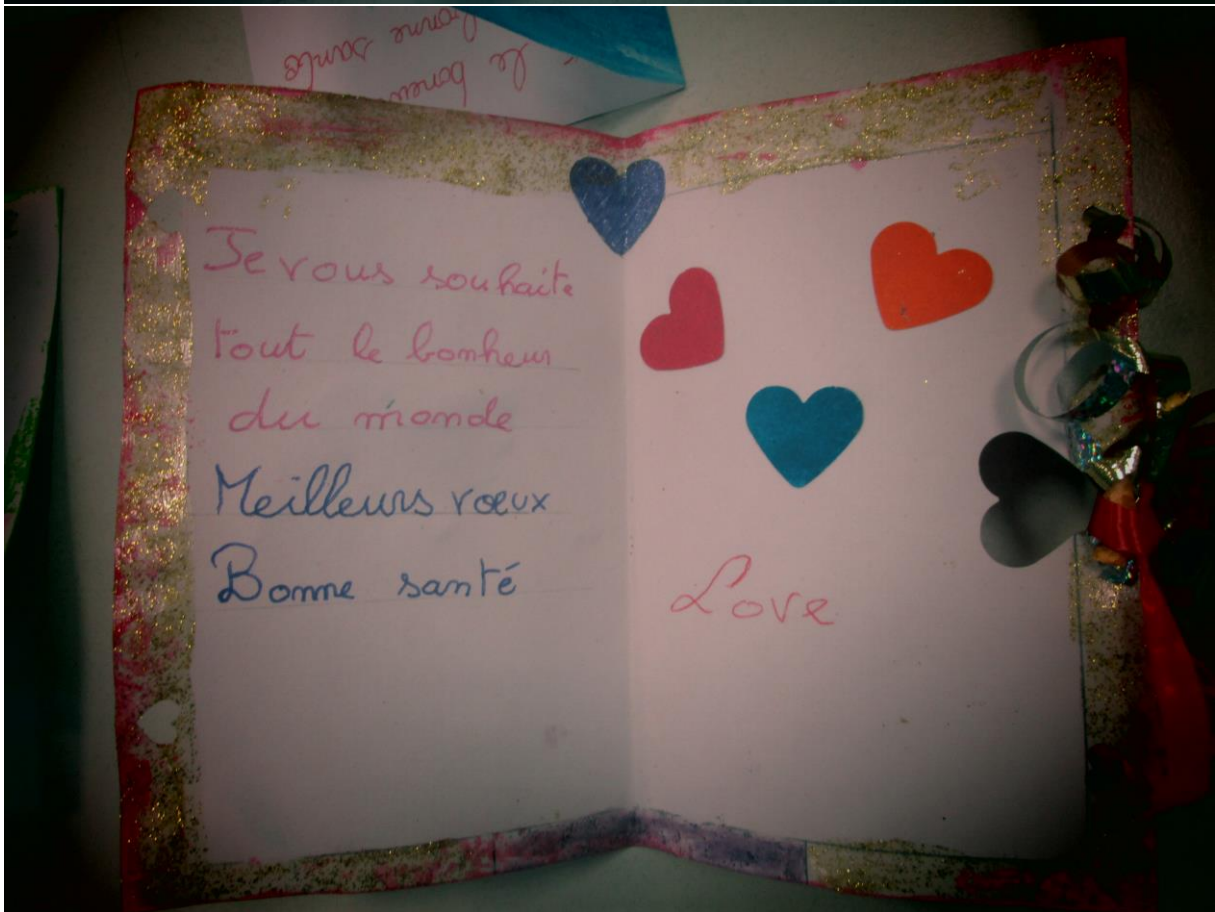 le boneu
bonne santé
Je vous souhaite
tout le bonheur
du monde
Meilleurs vœux
Bonne santé
Love